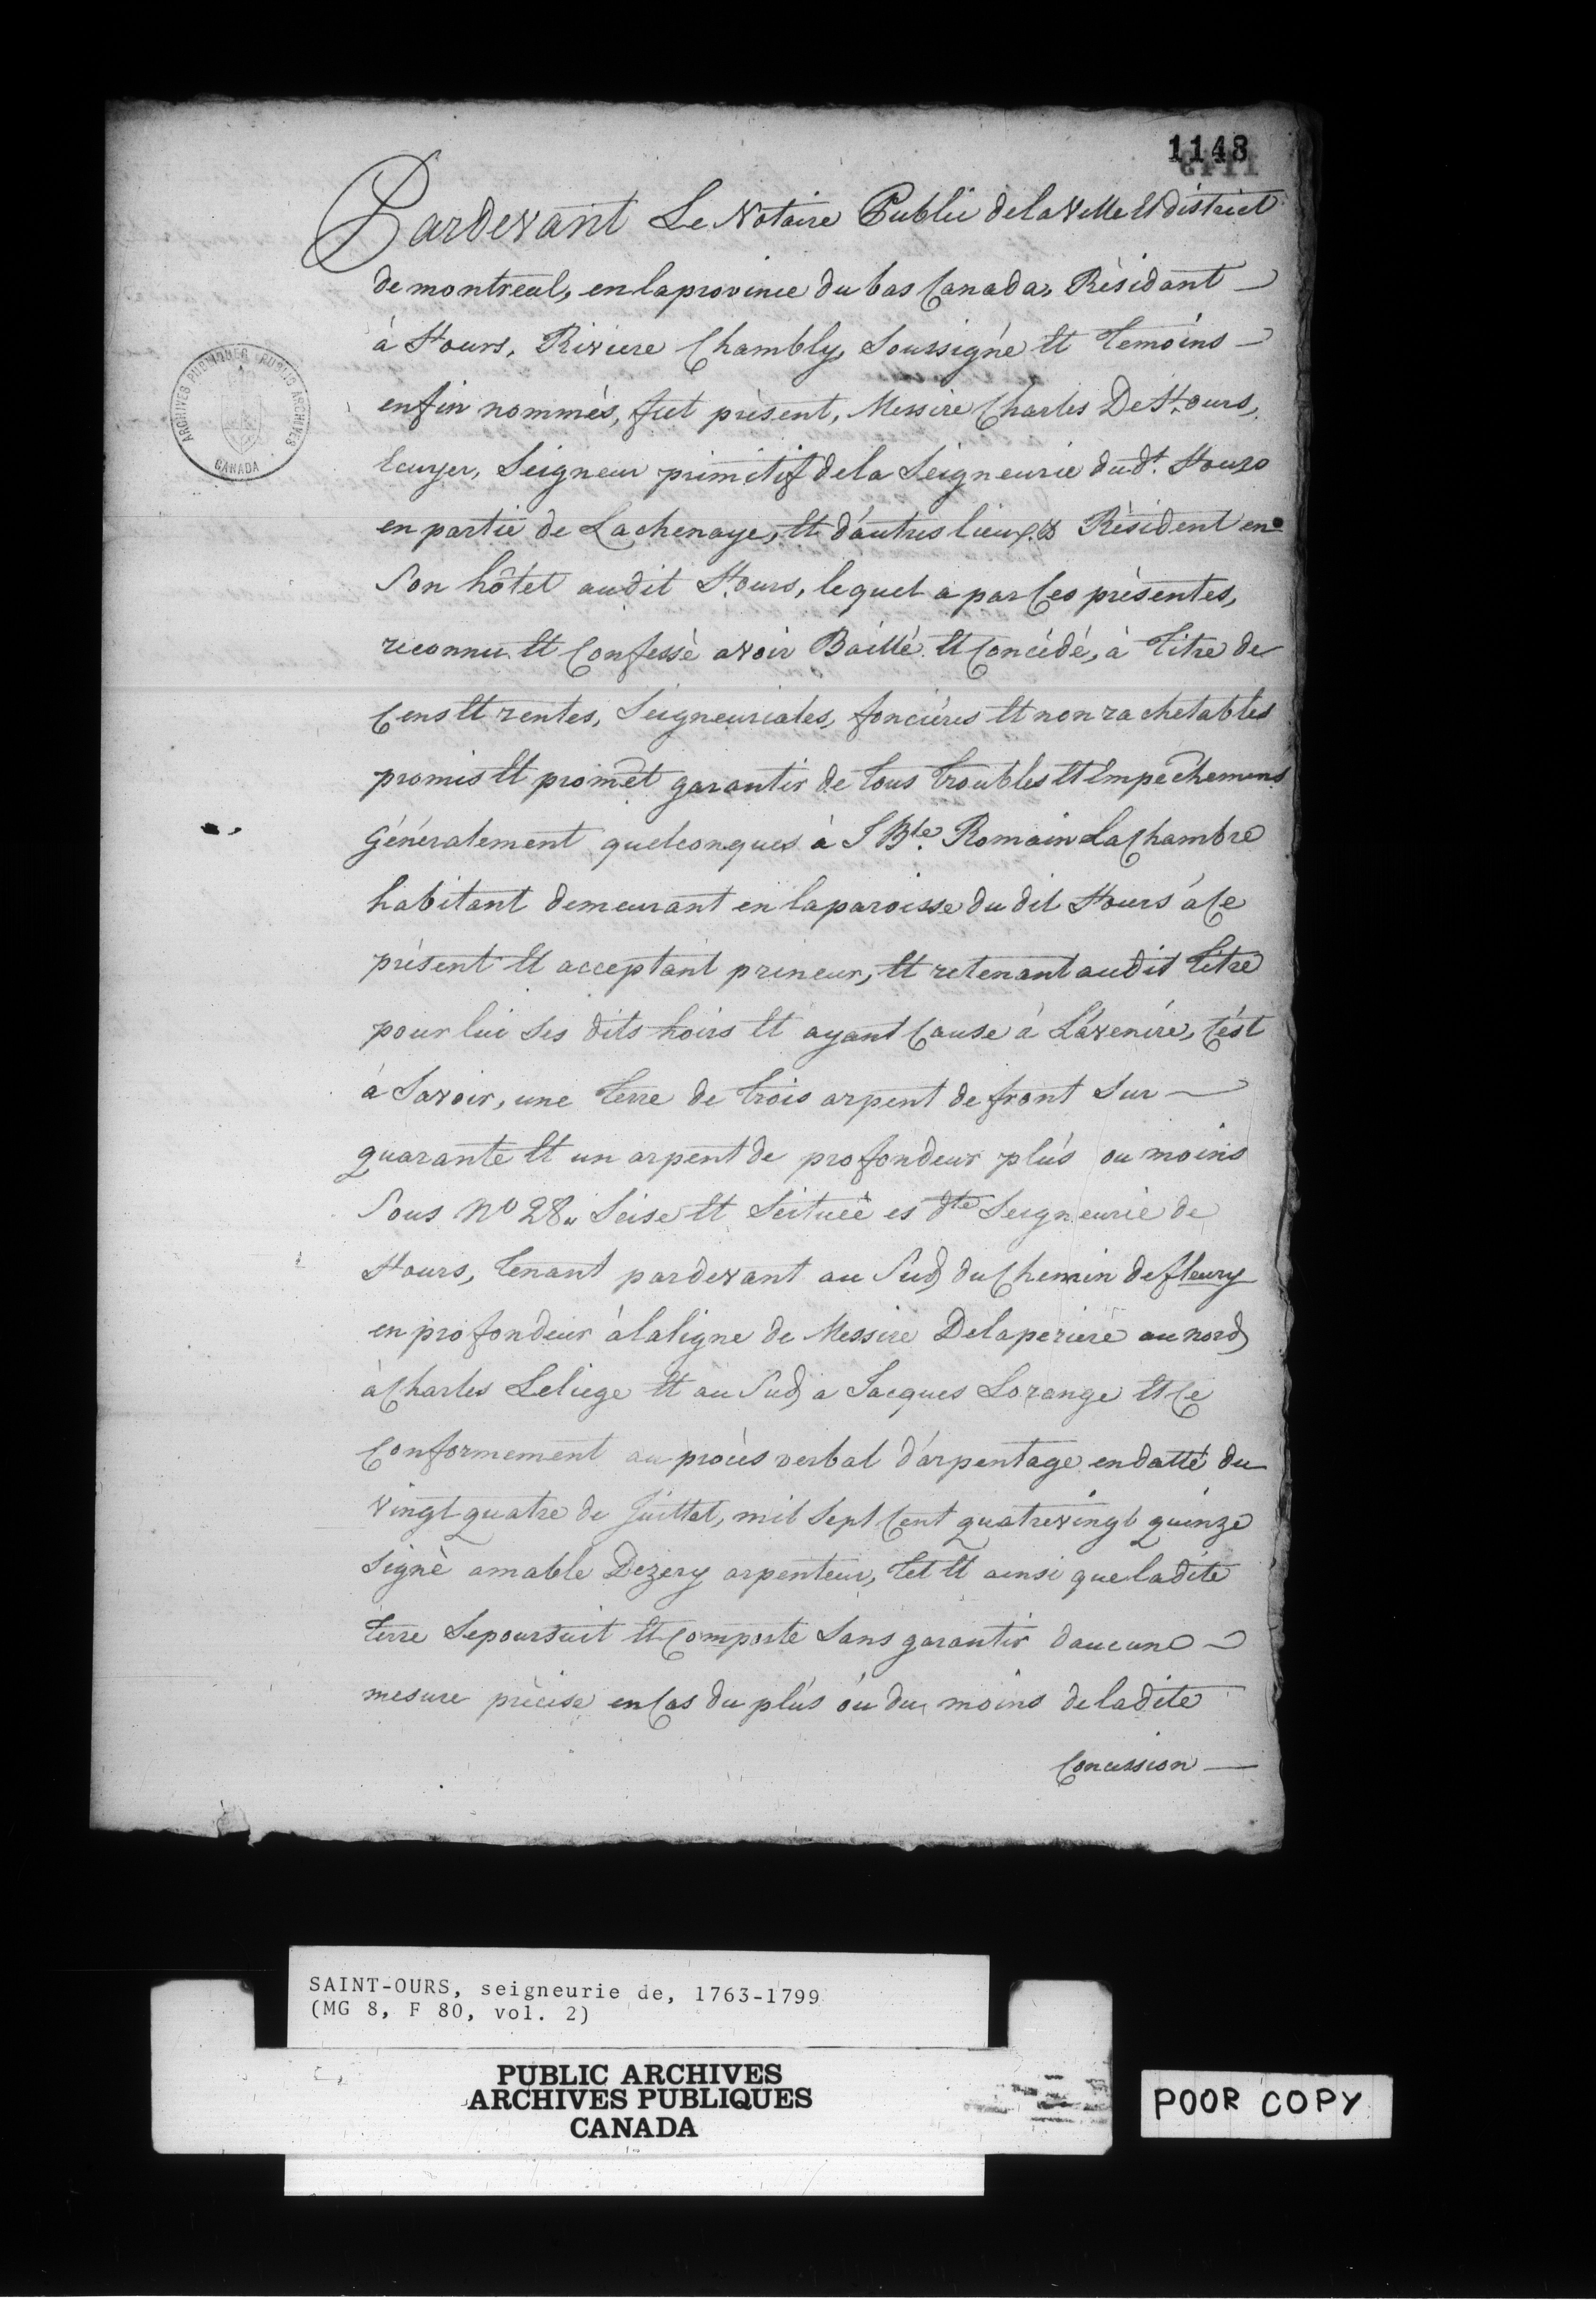 1148
Pardevant Le Notaire Public delaVille Et district
de montreal, enlaprovince du bas Canada, Résidant —
à St ours, Riviere Chambly, Soussigné Et Temoins —
enfin nommés, fut présent, Messire Charles De St. ours,
Ecuyer, Seigneur primitif dela Seigneurie dudt. St ours
en partie de Lachenaye, Et d'autres lieux & Résident en
Son hôtel audit St. ours, lequel a par Ces présentes,
reconnu Et Confessé avoir Baillé Et Concédé, à Titre de
Cens Et rentes, Seigneuriales, foncières Et non rachetables
promis Et promet garantir de Tous Troubles Et Empechemens
Généralement quelconques à J Bte. Romain LaChambre
habitant demeurant en laparoisse du dit St ours à Ce
présent Et acceptant prineur, Et retenant audit Titre
pour lui Ses dits hoirs Et ayant Cause à L'avenire, C'est
à Savoir, une Terre de Trois arpent de front Sur —
quarante Et un arpent de profondeur plus ou moins
Sous No 28 „ Seise Et Seituée es dte Seigneurie de
St ours, Tenant pardevant au Sud du Chemin de fleury
en profondeur à la ligne de Messire Delaperiere au nord
à Charles Leliege Et au Sud a Jacques Lorange Et Ce
Conformement au procès verbal d'arpentage endatté du
vingt quatre de Juillet, mil Sept Cent quatrevingt quinze
Signé amable Dezery arpenteur, Tel Et ainsi que ladite
Terre Sepoursuit Et Comporte Sans garantir daucune —
mesure précise en Cas du plus ou du moins deladite
Concession —
ARCHIVES PUBLIQUES PUBLIC ARCHIVES
CANADA
SAINT-OURS, seigneurie de, 1763-1799
(MG 8, F 80, vol. 2)
PUBLIC ARCHIVES
ARCHIVES PUBLIQUES
CANADA
POOR COPY